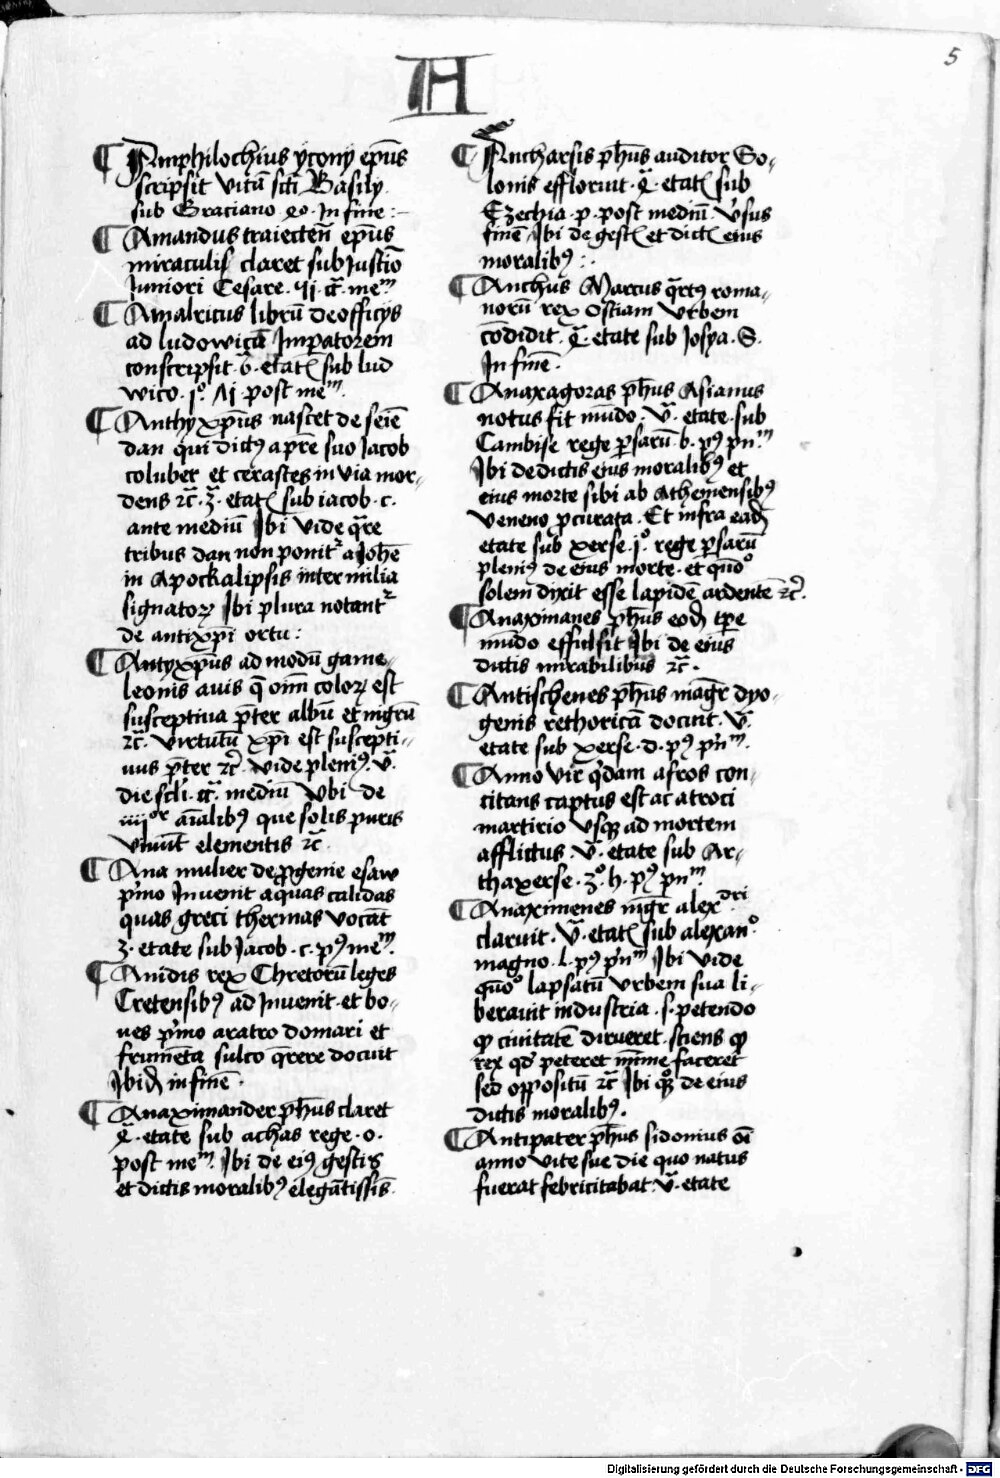 A
5
¶ Amphilochius ycony ep̄us
scripsit vitā scti Basily
sub Graciano In fine :
¶ Amandus traiecten̄ ep̄us
miraculis claret sub Justīo
Juniori Cesare
¶ Amalricus librū de officys
ad ludowicū Imp̲atorem
conscripsit etat͛ sub lud
wico jº post meᵐ.
¶ Anthyxp̄us nascet͛ de seīe
dan qui dictꝰ a pr̄e suo Jacob
coluber et cerastes in via mor-
dens ꝛc̄. 3ͣ. etat͛ sub iacob . c.
ante mediū Ibi vide q̄re
tribus dan non ponitᷣ a Johē
in Apockalipsis inter milia
signatoꝝ Ibi plura notantᷣ
de antixp̄i ortu :
¶ Antyxp̄us ad modū game-
leonis auis q̄ oīm coloꝝ est
susceptiua p̄ter albū et nigrū
ꝛc̄. virtutū xp̄i est suscepti-
uus p̄ter ꝛc̄ vide pleniꝰ. v̄.
die scl̄i. mediū vbi de
iiijᵒʳ aīalibꝫ que solis puris
viuūt elementis ꝛc̄
¶ Ana mulier de p̲genie esaw
p̲mo Inuenit aquas calidas
quas greci thermas vocāt
3. etate sub Jacob . c . pꝰ meᵐ.
¶ Anidis rex Chretorū leges
Cretensibꝫ ad Inuenit et bo-
ues p̲mo aratro domari et
frumēta sulco q̄rere docuit
Ibid̄ in finē .
¶ Anaximander ph̄us claret
etate sub achas rege . o .
post meᵐ. Ibi de eiꝰ gestis
et dictis moralibꝫ elegātissīs.
¶ Ancharsis ph̄us auditor So-
lonis effloruit etat͛ sub
Ezechia . p . post mediū v̄sus
finē Ibi de gest͛ et dict͛ eius
moralibꝫ :
¶ Anchus Marcus q̄rtꝰ roma-
norū rex Ostiam vrbem
cōdidit etate sub Josya . S.
In finē .
¶ Anaxagoras ph̄us Asianus
notus fit mūdo . v̄. etate sub
Cambise rege p̲sarū . b . pꝰ pn̄ᵐ
Ibi de dictis eius moralibꝫ et
eius morte sibi ab Athemensibꝫ
veneno p̲curata . Et infra ead̄
etate sub xerse jº rege p̲sarū
pleniꝰ de eius morte et quōº
solem dixit esse lapidē ardentē ꝛc̄.
¶ Anaximanes ph̄us eod̄ tp̄e
mūdo effulsit Ibi de eius
dictis mirabilibus ꝛc̄ .
¶ Antischenes ph̄us mag̅r dyo-
genis rethoricā docuit . v̄.
etate sub xerse . d . pꝰ pn̄ᵐ.
¶ Anno vir q̲dam afros con-
citans captus est ac atroci
martirio vsqꝫ ad mortem
afflictus . v̄. etate sub Ar-
thaxerse . 3º. h . pꝰ pn̄ᵐ
¶ Anaximenes mg̅r alexᵈʳⁱ
claruit . v̄. etat͛ sub alexanº
magno . l . pꝰ pn̄ᵐ Ibi vide
quōº lapsatū vrbem sua li-
berauit industria . s . petendo
ꝙ ciuitatē dirueret . sciens ꝙ
rex qd̄ peteret mīme faceret
sed oppositū ꝛc̄ Ibi qꝫ de eius
dictis moralibꝫ .
¶ Antipater ph̄us sidonius oī
anno vite sue die quo natus
fuerat febricitabat . v̄. etate
Digitalisierung gefördert durch die Deutsche Forschungsgemeinschaft - DFG